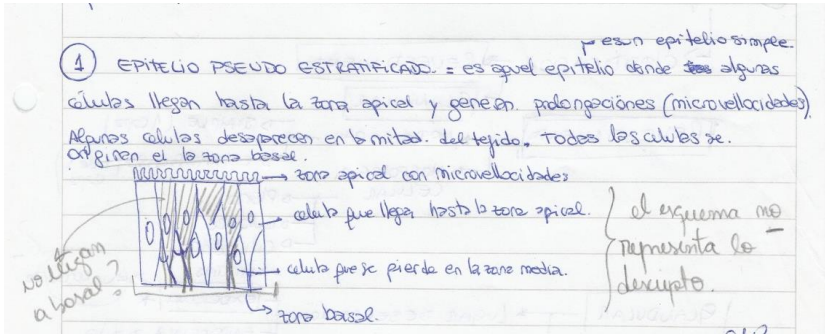 → es un epitelio simple.
1 EPITELIO PSEUDO ESTRATIFICADO. = es aquel epitelio donde algunas
células llegan hasta la zona apical y generan prolongaciones (microvellocidades).
Algunas celulas desaparecen en la mitad. del tejido. Todas las celulas se.
originan en la zona basal.
→ zona apical con microvellocidades
→ celula que llega hasta la zona apical.
→ celula que se pierde en la zona media.
→ zona basal.
no llegan
a basal?
el esquema no
representa lo
descripto.